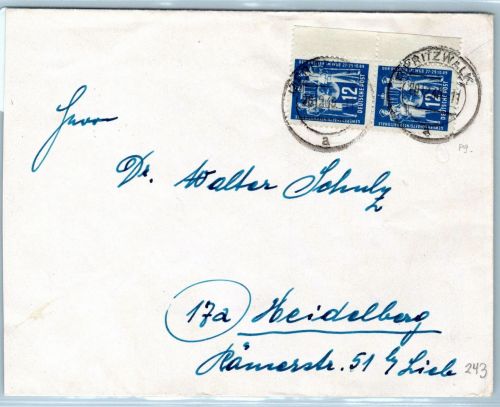 PRITZWALK
12 12
DEUTSCHE POST DEUTSCHE POST
a a
pg.
Herrn
Dr. Walter Schulz
17a Heidelberg
Römerstr. 51 b/ Lieb
243